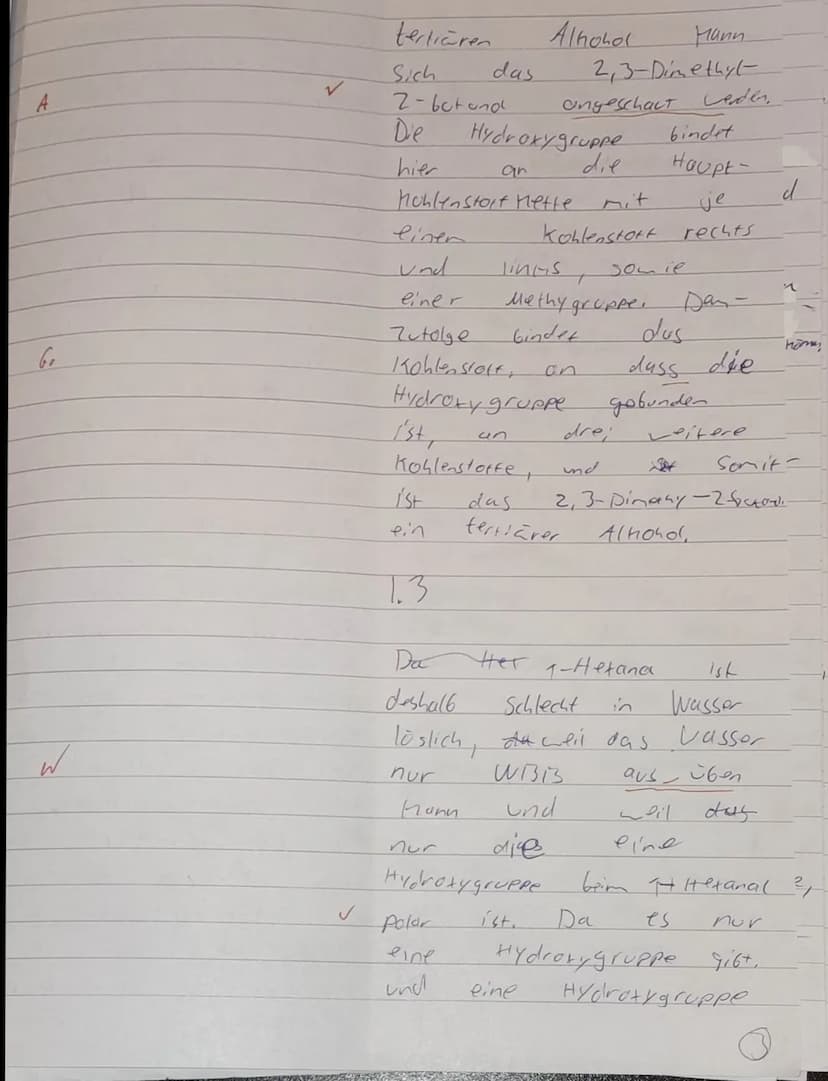 tertiären Alkohol kann
sich das 2,3-Dimethyl-
A ✓ 2-butanol angeschaut werden.
Die Hydroxygruppe bindet
hier an die Haupt-
kohlenstoffkette mit je d
einem Kohlenstoff rechts
und links, sowie
einer Methygruppe. Dem-
zufolge bindet das
G. Kohlenstoff, an dass die
Hydroxygruppe gebunden
ist, an drei weitere
Kohlenstoffe, und somit
ist das
ein tertiärer Alkohol.
1.3
Da 1-Hexanol ist
deshalb schlecht in Wasser
löslich, weil das Wasser
W nur WBIB aus üben
kann und weil das
nur die eine
Hydroxygruppe beim 1-Hexanal ?,
✓ polar ist. Da es nur
eine Hydroxygruppe gibt.
und eine Hydroxygruppe
3